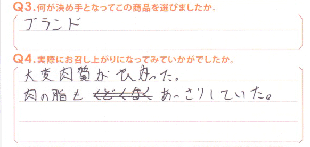 Q3.何が決め手となってこの商品を選びましたか。
ブランド
Q4.実際にお召し上がりになってみていかがでしたか。
大変肉質が良かった。
肉の脂も くどくなく あっさりしていた。